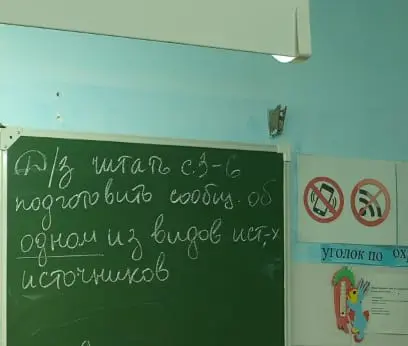 Д/з читать с.3-6
подготовить сообщ. об
одном из видов ист-х
источников
уголок по ох